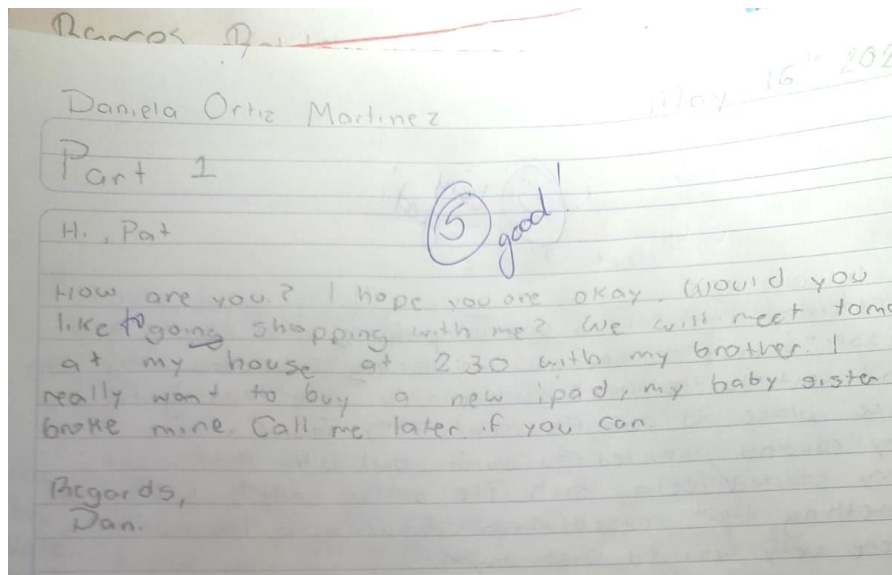 Ramos
Daniela Ortiz Martinez
May 16th 202
Part 1
5 good!
Hi, Pat
How are you? I hope you are okay. Would you
like to going shopping with me? We will meet tomo
at my house at 2:30 with my brother. I
really want to buy a new ipad, my baby sister
broke mine. Call me later if you can
Regards,
Dan.